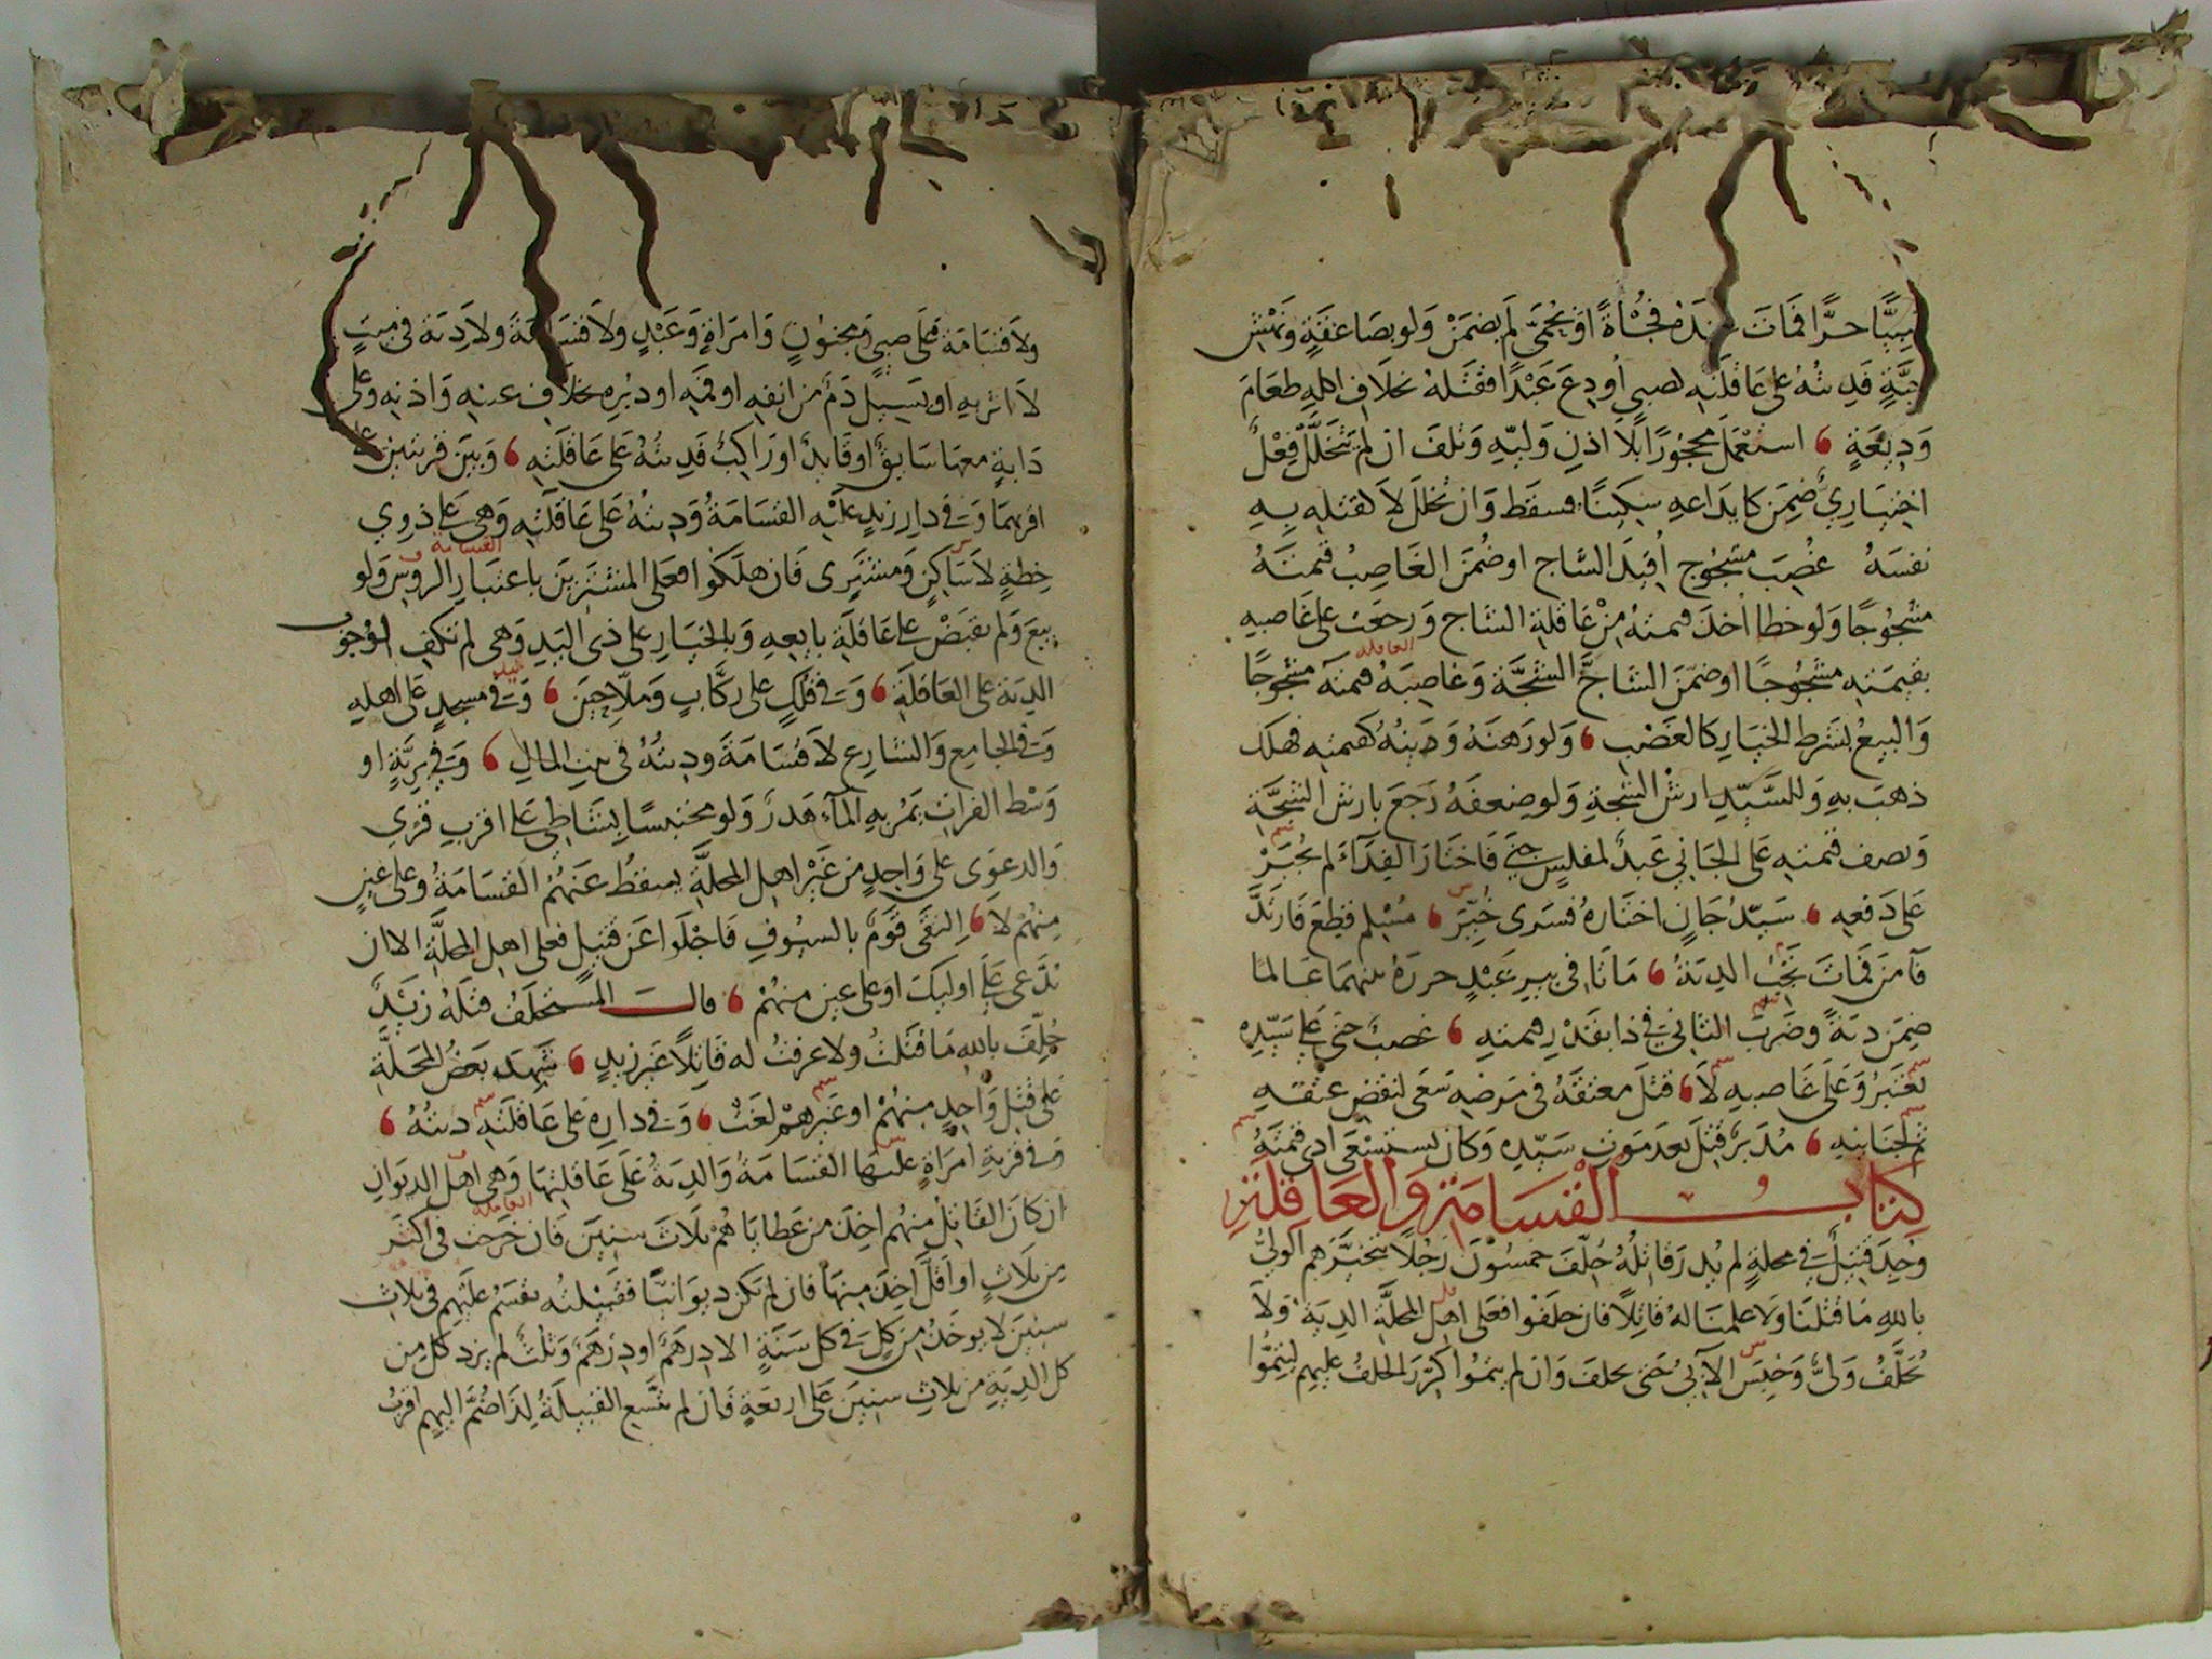 صبيًّا حرًّا فمات عنده فجُأةً او بحُمّى لم يضمَنْ ولو بصاعقةٍ ونَهْشِ
حيّةٍ فديتُهُ على عاقلته لصبي أُودِعَ عَبْدًا فقتلهُ بخلاف اكله طعَامَ
وَدِيعَةٍ استعْمَل محجُورًا بلا اذنِ وَليّهِ وتلفَ ان لم يتخلّل فِعْلٌ
اختياريٌ ضمِنَ كايداعهِ سكينًا فسقط وان تخلل لا لقتله بِهِ
نفسَهُ غُصِبَ مشجُوج اُقيدَ الشّاج او ضُمنَ الغَاصِبُ قيمتَهُ
مشجُوجًا ولو خطا اُخذ قيمتهُ مِنْ عاقلة الشاج ورجعت على غاصبهِ
بقيمَته مشجُوجًا او ضمّنَ الشاجّ الشجّة وغاصبهُ قيمتَه مشجُوجًا
العاقله
والبيعُ بشرط الخيَار كالغصْب ولو رهنَهُ ودينُهُ كقيمته فهلك
ذهبَ بهِ وللسّيّد ارش الشجةِ ولو ضعفَهُ رَجَعَ بارش الشجّة
ونصف قيمته على الجاني عبدٌ لمفلسٍ جنى فاختارَ الفِدَآءَ لم يُجبَرْ
على دَفعهِ سيّدُ جَانٍ اختاره فسَرى خُيّرَ مُسْلم قطِعَ فارتدَّ
فآمنَ فمات تجبُ الديَةُ مَاتَا في بير عَبْدٍ حررَهُ بينهمَا عَالما
ضمنَ ديَةً وضَرَبَ الثاني في ذا بقدْرِ قيمتهِ غصبٌ جنى على سَيّدِه
تعتبَرُ وعَلى غَاصبهِ لَا قتلَ معتقهُ في مَرضهِ سَعى لنقض عتقهِ
ثم لجنايتهِ مُدَبرٌ قتلَ بعدَ مَوت سَيّدِه وكان يستسْعَى ادى قيمتَهُ
كتابُ القسَامَة وَالعَاقلَةِ
وُجِدَ قتيلٌ في محلةٍ لم يُدرَ قاتلُهُ حُلّفَ خمسُونَ رَجُلًا يتخيّرُهم الوليُّ
بالله مَا قتلنَا ولَا علمنَا لهُ قاتِلًا فان حلفُوا فعَلى اهلِ المحلّة الديَة ولا
يُحلّفُ وَليٌّ وَحُبِسَ الآبيُ حَتى يحلفَ وان لم يتمُوا كُرّرَ الحلفُ عليهم ليتمُّوا
ولا قسَامَة على صبيٍ ومجنُونٍ وَامرَاةٍ وَعَبْدٍ ولا قسَامَةَ ولا دِيَة في ميتٍ
لا اثر بهِ او يَسيل دَمٌ من انفهِ او فمهِ او دبُرِه بخلافِ عينهِ واذنهِ وعلى
دَابةٍ معهَا سَايقٌ او قايدٌ او رَاكبٌ فديتُهُ على عَاقلتهِ وَبينَ قريتين على
اقربهمَا وفي دارِ زيدٍ عليْه القسَامَةُ وَديتهُ على عَاقلتْه وَهي على ذوي
القسامة
خِطةٍ لا سَاكنٍ وَمشترى فان هلكوا فعلى المشترينَ باعتبَارِ الروسِ وَلو
بيعَ ولم يقبَضْ على عَاقلَة بايعهِ وَبالخيَارِ على ذي اليَدِ وَهى لم تكفِ لوجُوب
الديَة على العَاقلَة وَفي فلكٍ على ركّابٍ وَملّاحِينَ وَفي مسجدٍ على اهلهِ
وَفي الجامعِ وَالشارعِ لا قسَامَةَ ودِيتُهُ في بيت المالِ وَفي بَرّيّةٍ او
وَسْط الفرات يَمُر بهِ المآء هَدرٌ وَلو محتبسًا بشَاطئ على اقربِ قُرًى
والدعوَى على وَاحدٍ من غَيْر اهل المحلّة يسقطُ عَنهُم القسَامَةُ وعلى عينٍ
مِنهُم لَا اِلتقَى قوَمٌ بالسيُوفِ فاجْلَوا عَن قتيلٍ فعلى اهل المحلّة الا ان
يدّعى على اوليكَ او على عين منهُم قالــ المستحلَفُ قتلهُ زيْدٌ
حُلّفَ بالله مَا قتلتُ ولا عرفتُ له قاتِلًا غيرَ زيدٍ شهدَ بعضُ المحَلّة
عَلى قتل وَاحدٍ منهُمْ او غيرهمْ لغَتْ وَفي دارِه على عَاقلته ديتُهُ
وفي قريَة امرَاةٍ عليهَا القسَامَةُ وَالديَةُ عَلى عَاقلتها وَهى اهل الديوَان
العاقله
ان كان القاتل منهُم اخذ من عَطايَاهُم ثلاثَ سِنينَ فان خَرَجت في اكثر
مِن ثلاثٍ او اقلّ اخذ مِنها فان لم يكن ديوَانيًّا فقبيْلتُه تقسَمُ عليهم في ثلاث
سنينَ لا يوخَذُ مِن كلٍ في كل سَنةٍ الا دِرهَمٌ او دِرْهَمٌ وَثلثٌ لم يزد كلٍ من
كل الديَةِ من ثلاث سنينَ عَلى اربعَةٍ فان لم تتّسع القبيلَةُ لِذا ضُمَّ اليهم اقربُ